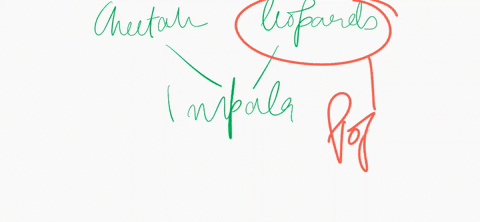 Cheetah leopards
Impala